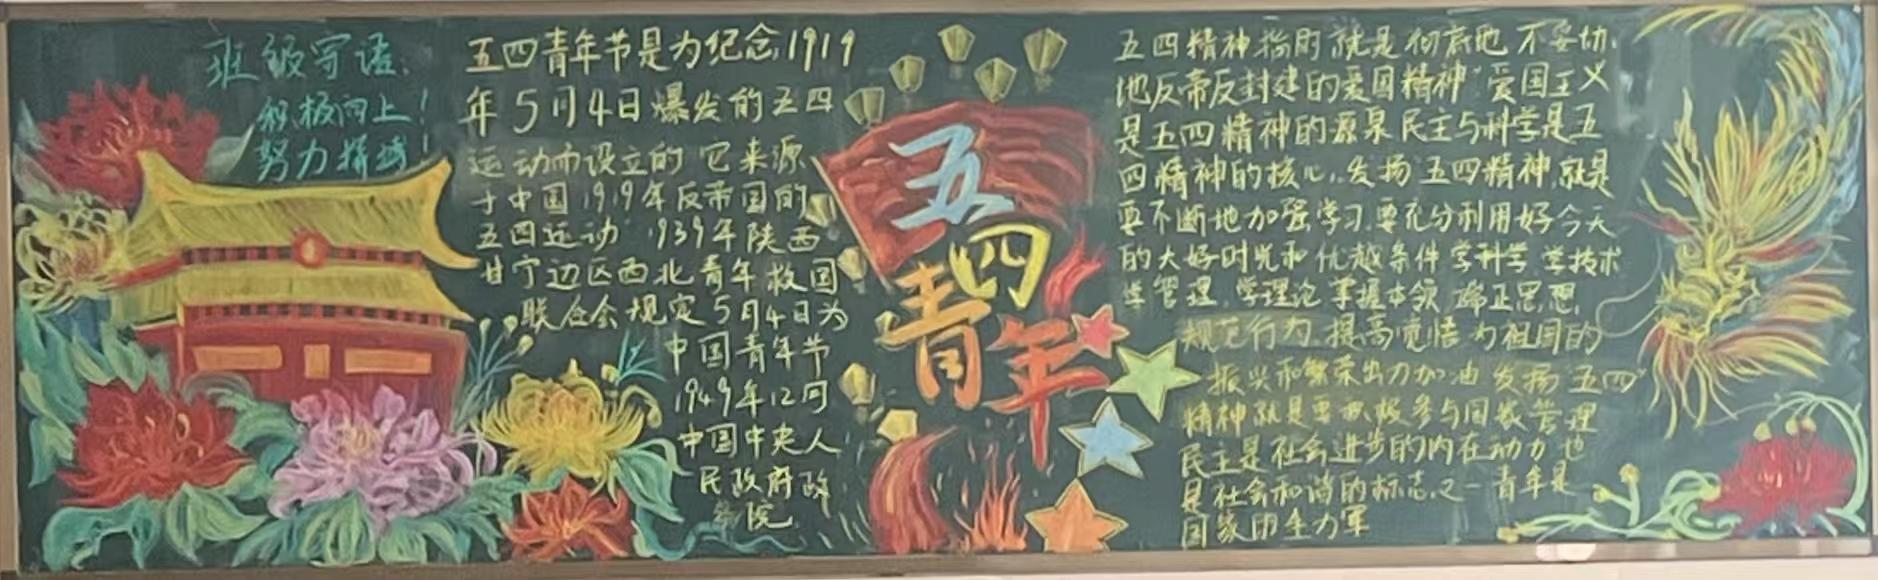 班级寄语:
积极向上!
努力拼搏!
五四青年节是为纪念1919
年5月4日爆发的五四
运动而设立的 它来源
于中国1919年反帝国的
五四运动 1939年陕西
甘宁边区西北青年救国
联合会规定5月4日为
中国青年节
1949年12月
中国中央人
民政府政
务院
五
四
青
年
五四精神指的就是彻底地 不妥协
地反帝反封建的爱国精神 爱国主义
是五四精神的源泉民主与科学是五
四精神的核心.发扬五四精神,就是
要不断地加强学习.要充分利用好今天
的大好时光和优越条件 学科学 学技术
学管理.学理论 掌握本领 端正思想,
规范行为.提高觉悟 为祖国的
振兴和繁荣出力加油 发扬"五四"
精神就是要积极参与国家管理
民主是社会进步的内在动力 也
是社会和谐的标志之一 青年是
国家的生力军